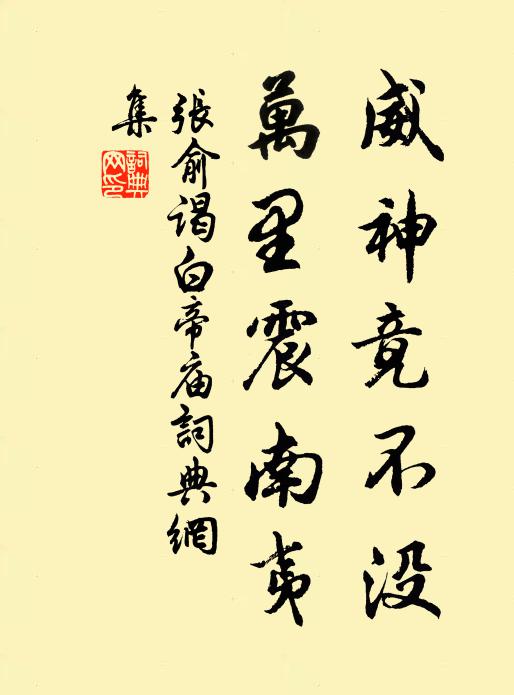 威神竟不没
萬里震南夷
張俞謁白帝庙詞典網
集
詞典網印